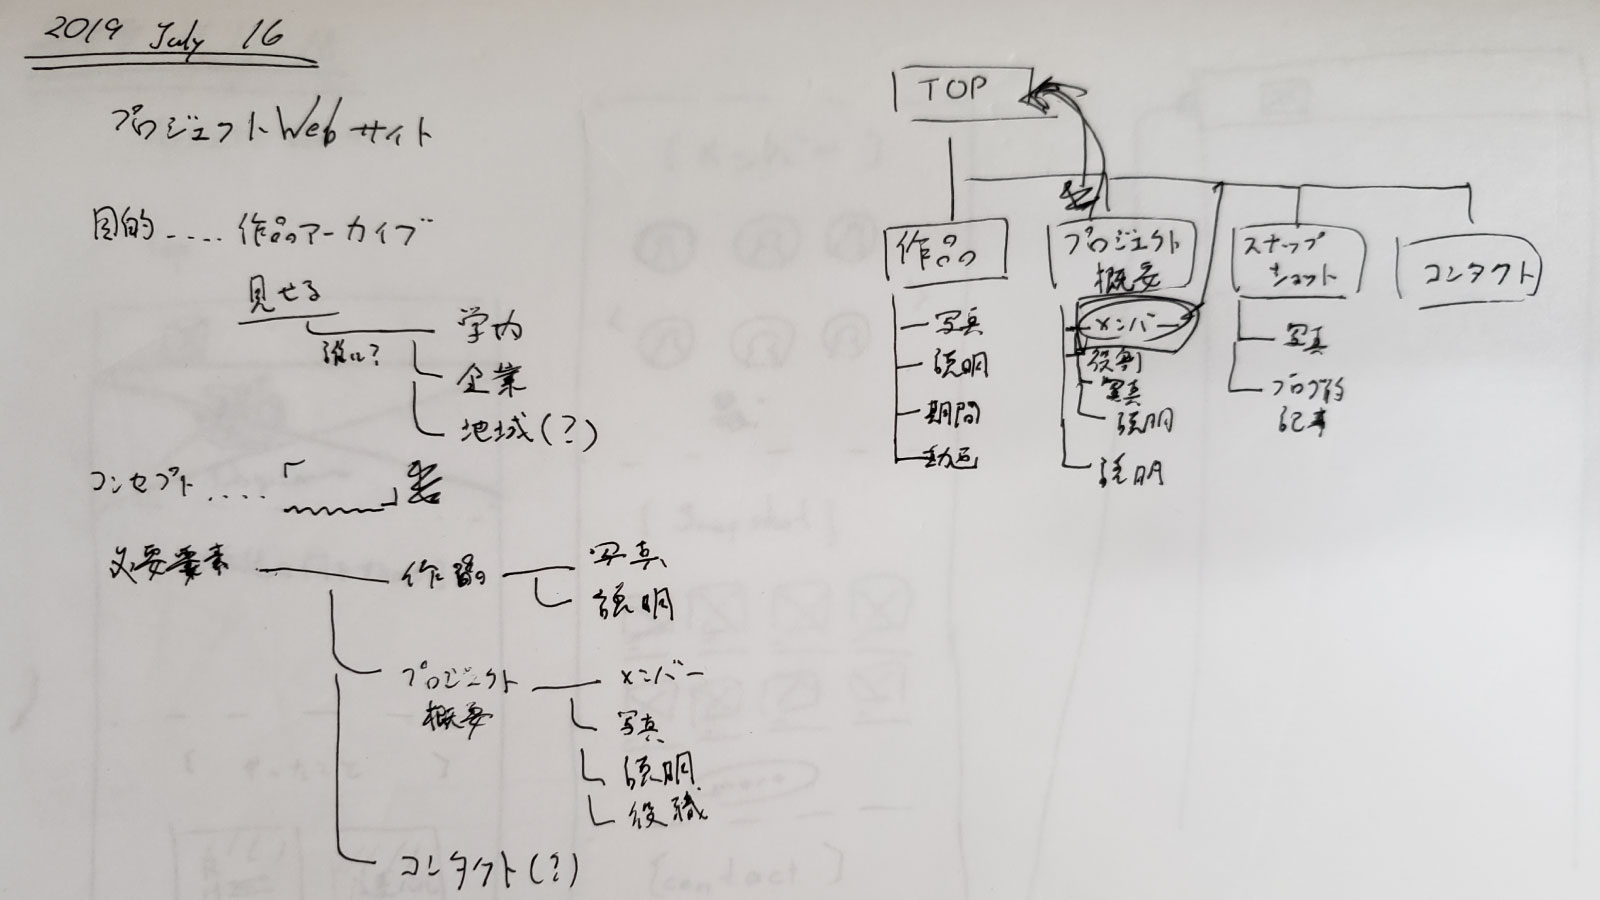 2019 July 16
プロジェクトWebサイト
目的.....作品のアーカイブ
見せる
誰に?
学内
企業
地域(?)
コンセプト.....「　　」
必要要素
作品
写真
説明
プロジェクト
概要
メンバー
写真
説明
役職
コンタクト(?)
TOP
作品
写真
説明
期間
動画
プロジェクト
概要
メンバー
役割
写真
説明
説明
スナップ
ショット
写真
ブログ的
記事
コンタクト